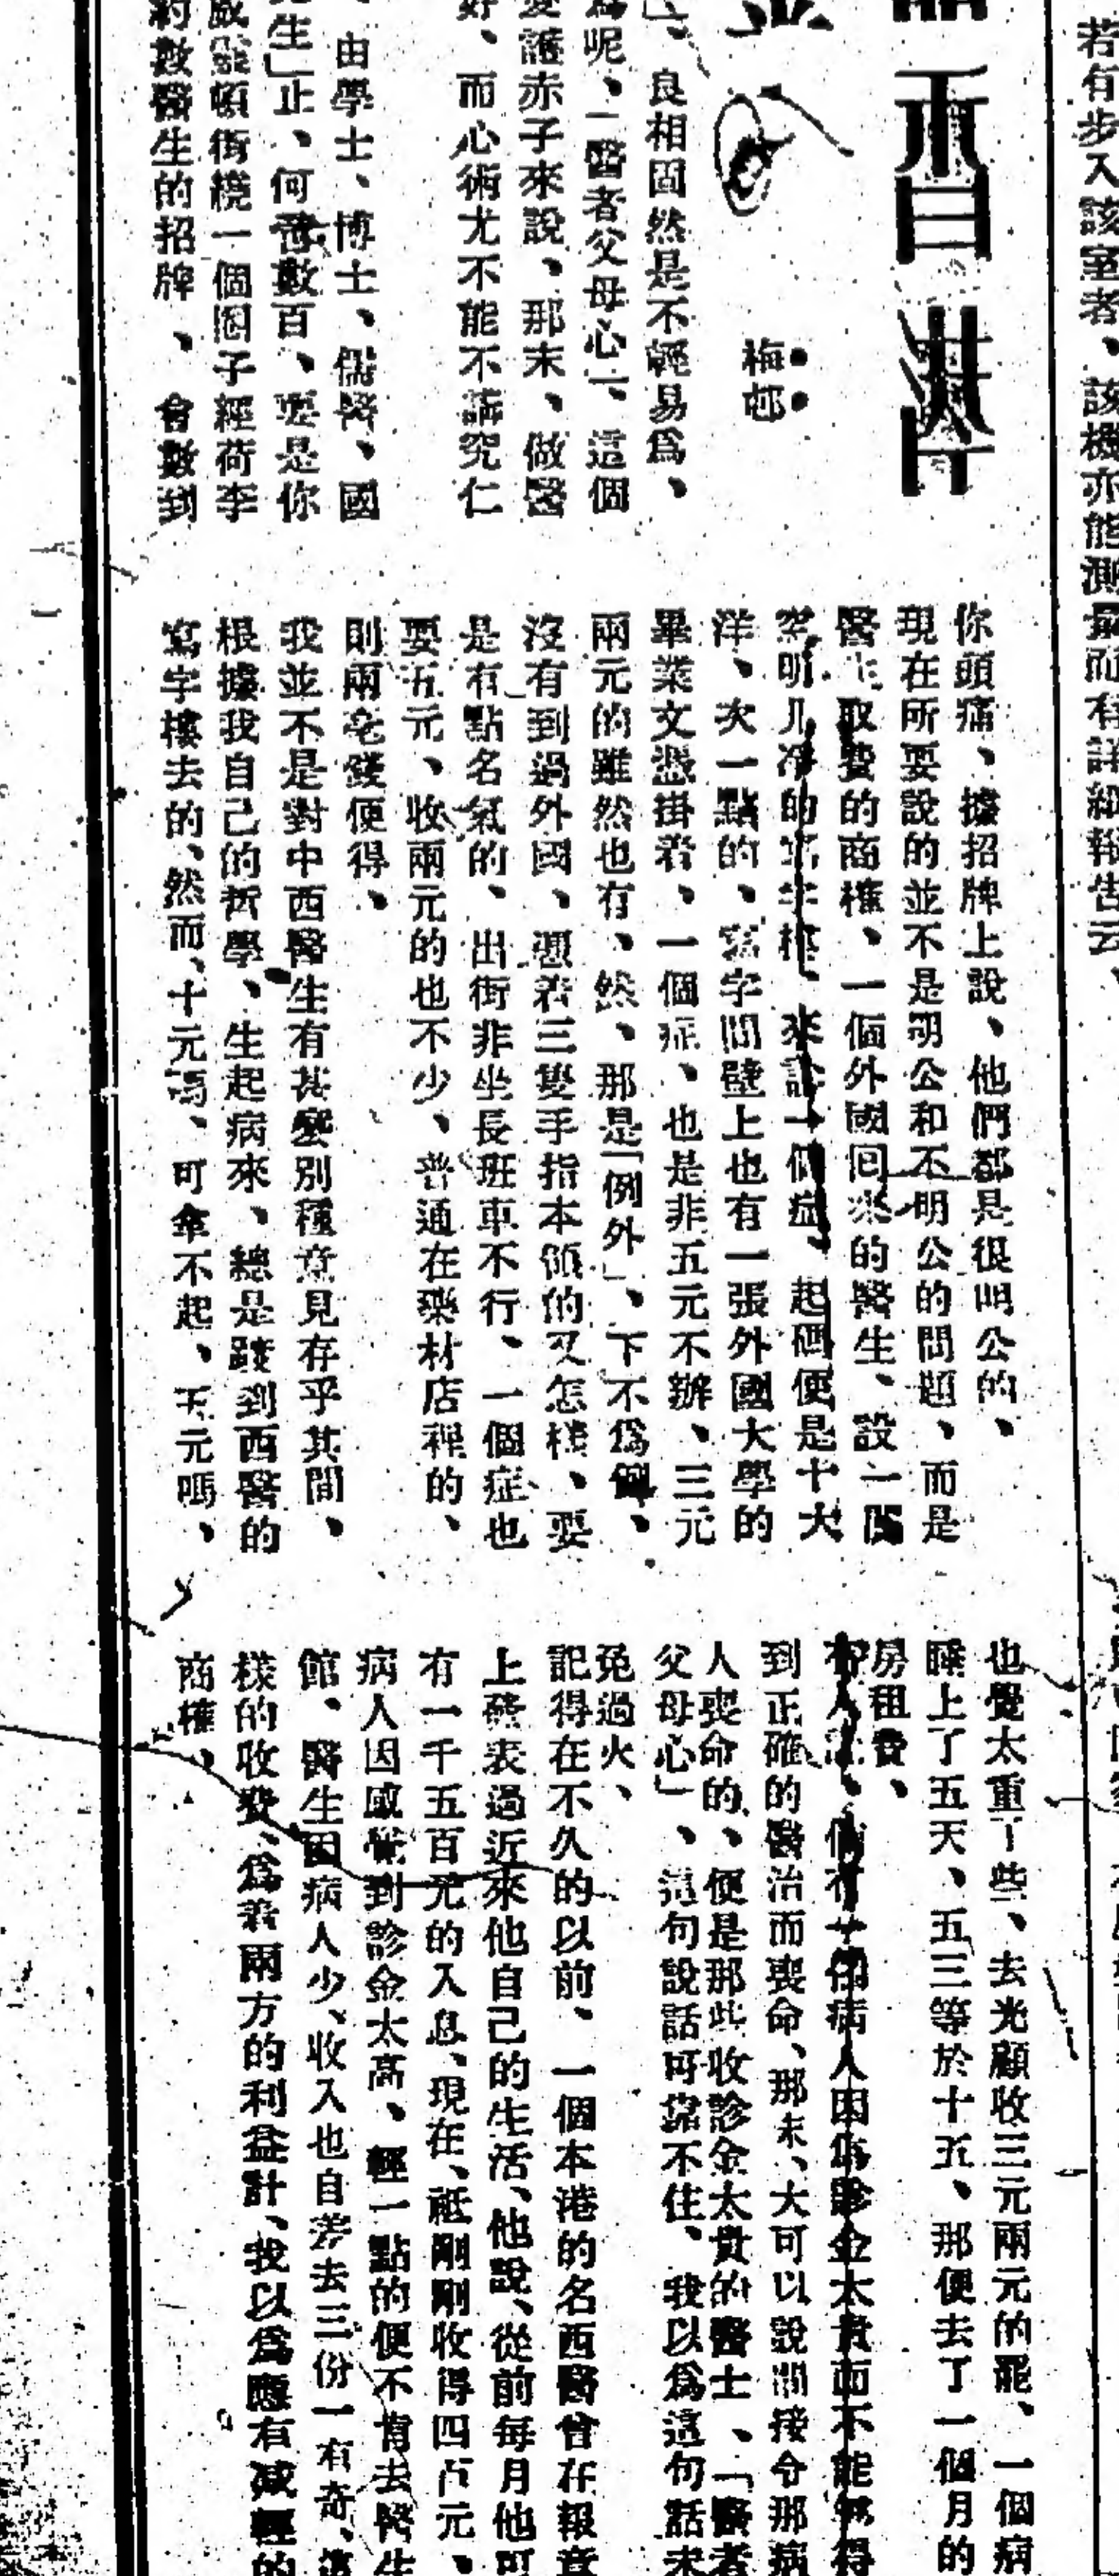 若有步入該室者、該機亦能測量而有詳細報告云、
梅邨
、良相固然是不輕易爲、
爲呢、「醫者父母心」、這個
愛護赤子來說、那末、做醫
好、而心術尤不能不講究仁
、由學士、博士、儒醫、國
生」止、何啻數百、要是你
頓街繞一個圈子經荷李
約數醫生的招牌、會數到
你頭痛、據招牌上說、他們都是很明公的、
現在所要說的並不是明公和不明公的問題、而是
醫生取費的商榷、一個外國回來的醫生、設一間
窗明几淨的寫字樓、來診一個症、起碼便是十大
洋、次一點的、寫字間壁上也有一張外國大學的
畢業文憑掛着、一個症、也是非五元不辦、三元
兩元的雖然也有、然、那是「例外」、下不爲例、
沒有到過外國、憑着三隻手指本領的又怎樣、要
是有點名氣的、出街非坐長班車不行、一個症也
要五元、收兩元的也不少、普通在藥材店裡的、
則兩毫錢便得、
我並不是對中西醫生有甚麼別種意見存乎其間、
根據我自己的哲學、生起病來、總是跑到西醫的
寫字樓去的、然而、十元嗎、可拿不起、五元嗎、
也覺太重了些、去光顧收三元兩元的罷、一個病
睡上了五天、五三等於十五、那便去了一個月的
房租費、
有人說、倘有一個病人因爲診金太貴而不能夠得
到正確的醫治而喪命、那末、大可以說間接令那病
人喪命的、便是那些收診金太貴的醫士、「醫者
父母心」、這句說話可靠不住、我以爲這句話未
免過火、
記得在不久的以前、一個本港的名西醫曾在報章
上發表過近來他自己的生活、他說、從前每月他可
有一千五百元的入息、現在、祗剛剛收得四百元、
病人因感覺到診金太高、輕一點的便不肯去醫生
館、醫生因病人少、收入也自差去三份一有奇、這
樣的收費、爲着兩方的利益計、我以爲應有減輕的
商榷、